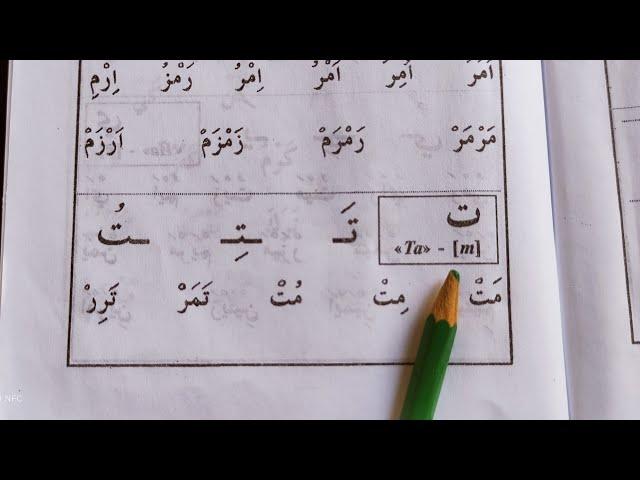 اَمَرَ اُمِرَ اَمْرُ اِمْرُ رَمْزُ اِرْمِ
مَرْمَرْ رَمْرَمْ زَمْزَمْ اَرْزَمْ
ت
«Ta» - [m]
تَـ ـتِـ ـتُ
مَتْ مِتْ مُتْ تَمَرْ تَرِرْ
NFC